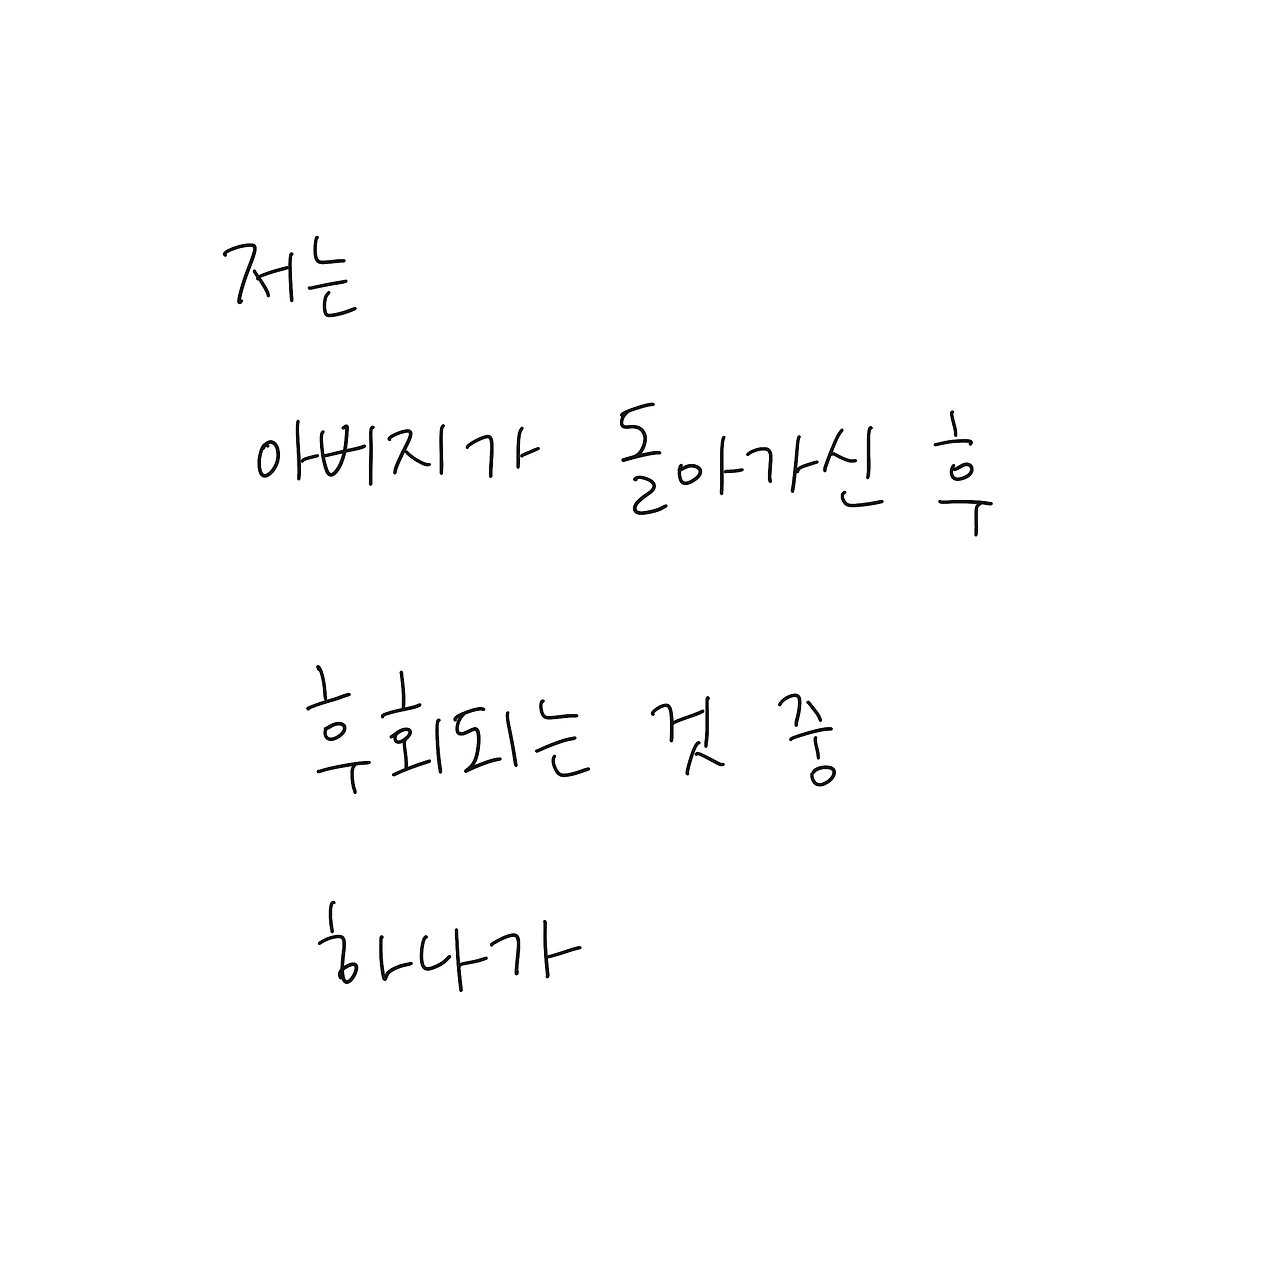 저는
아버지가 돌아가신 후
후회되는 것 중
하나가